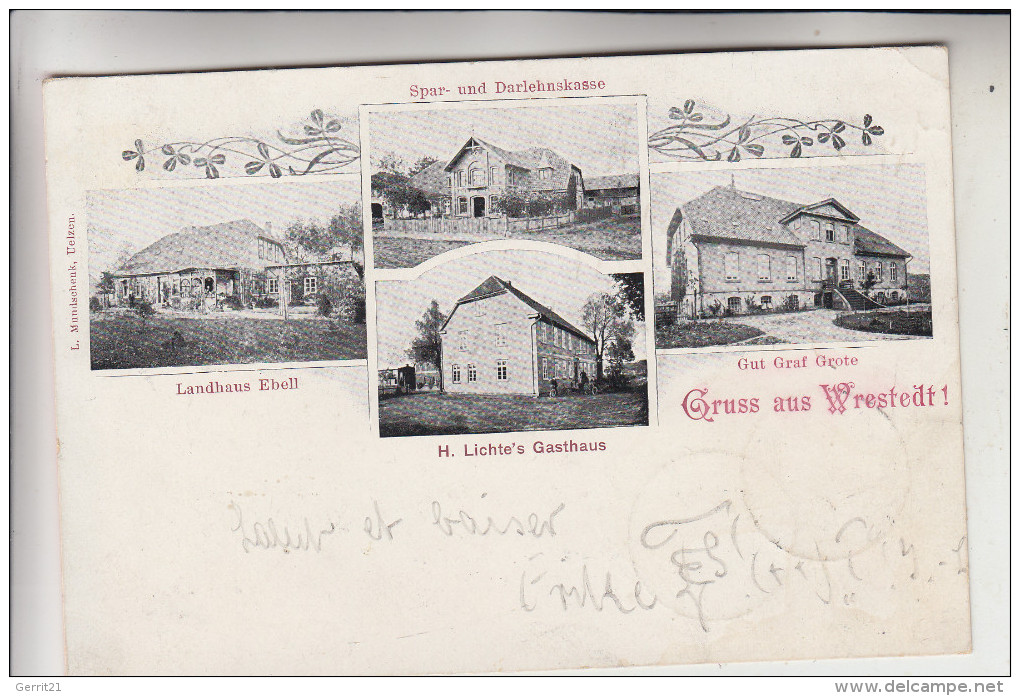 Spar- und Darlehnskasse
L. Mundschenk, Uelzen.
Landhaus Ebell
Gut Graf Grote
Gruss aus Wrestedt!
H. Lichte's Gasthaus
et baiser
Gerrit21
www.delcampe.net